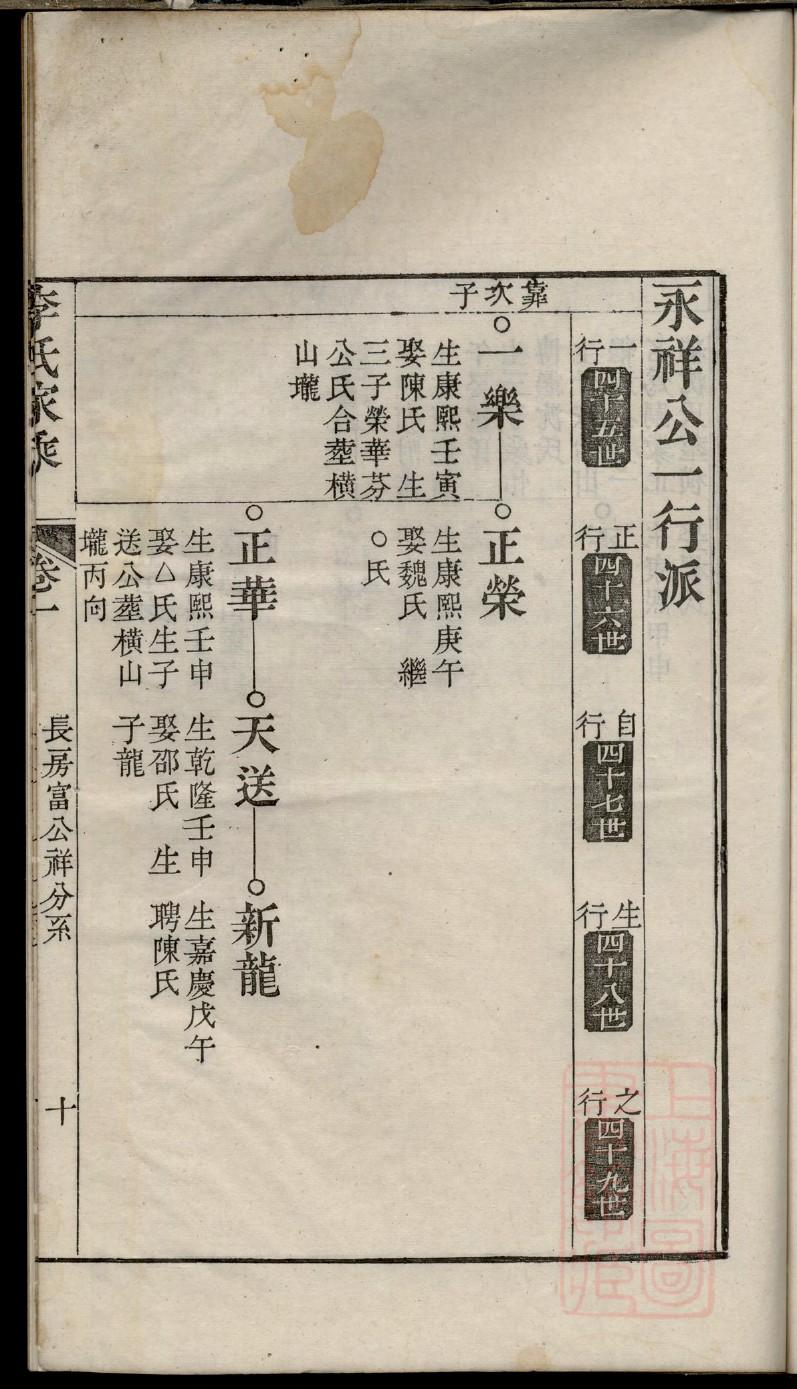 永祥公一行派
一行
四十五世
正行
四十六世
自行
四十七世
生行
四十八世
之行
四十九世
靠次子
一樂
生康熙壬寅
娶陳氏 生
三子榮華芬
公氏合塟橫
山壠
正榮
生康熙庚午
娶魏氏 繼
○氏
正華
生康熙壬申
娶△氏生子
送公塟橫山
壠丙向
天送
生乾隆壬申
娶邵氏 生
子龍
新龍
生嘉慶戊午
聘陳氏
李氏家乘
卷一
長房富公祥分系
十
上海圖